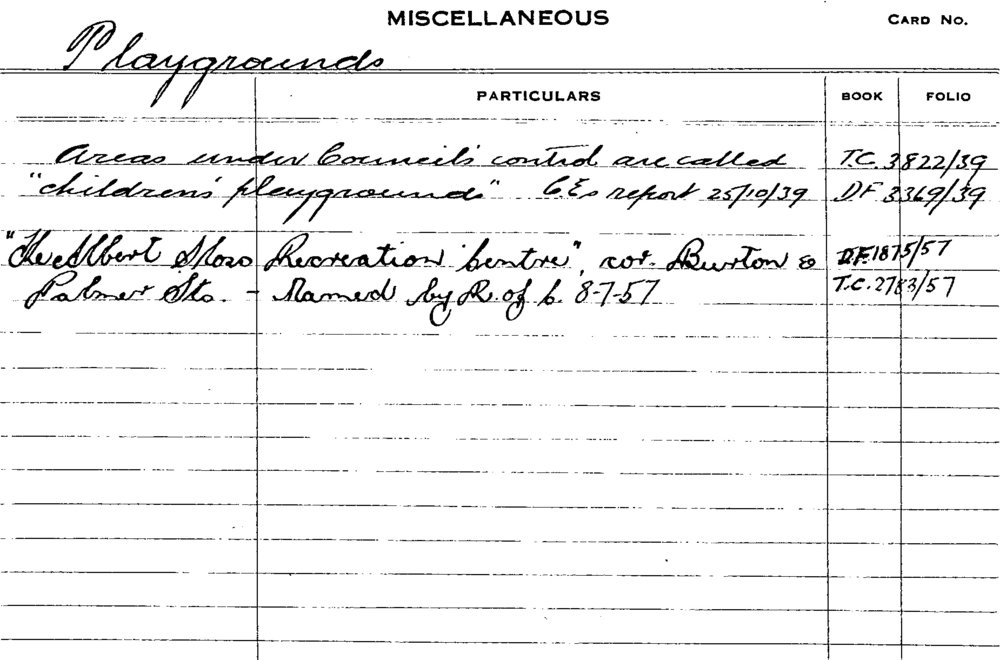 MISCELLANEOUS CARD NO.
Playgrounds
PARTICULARS BOOK FOLIO
Areas under Council's control are called T.C. 3822/39
"children's playgrounds" CEs report 25/10/39 D.F. 3369/39
"The Albert Sloss Recreation Centre", cor. Burton & D.F. 1875/57
Palmer Sts. - Named by R. of C. 8-7-57 T.C. 2783/57